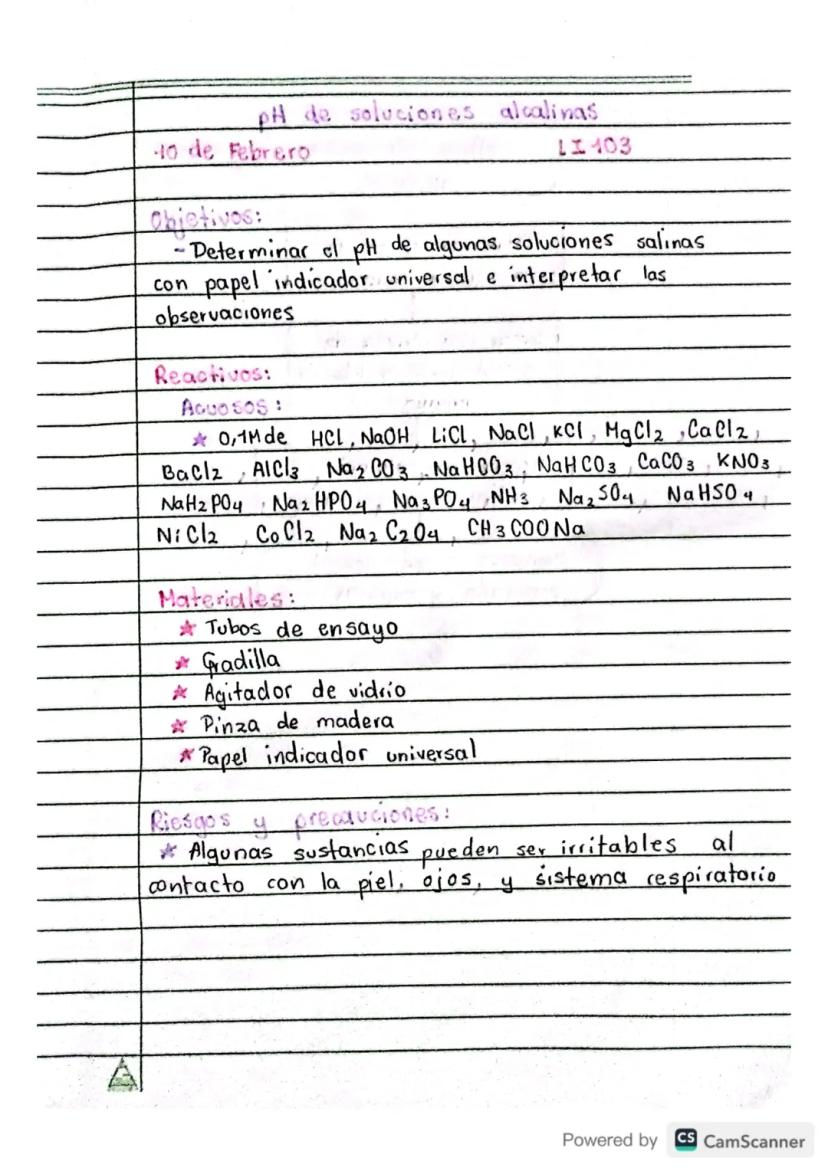 pH de soluciones alcalinas
10 de Febrero LI 103
Objetivos:
- Determinar el pH de algunas soluciones salinas
con papel indicador universal e interpretar las
observaciones
Reactivos:
Acuosos:
0,1M de HCl, NaOH, LiCl, NaCl, KCl, MgCl2, CaCl2,
BaCl2, AlCl3, Na2CO3, NaHCO3, NaHCO3, CaCO3, KNO3,
NaH2PO4, Na2HPO4, Na3PO4, NH3, Na2SO4, NaHSO4,
NiCl2, CoCl2, Na2C2O4, CH3COONa
Materiales:
Tubos de ensayo
Gradilla
Agitador de vidrio
Pinza de madera
Papel indicador universal
Riesgos y precauciones:
Algunas sustancias pueden ser irritables al
contacto con la piel, ojos, y sistema respiratorio
Powered by CS CamScanner